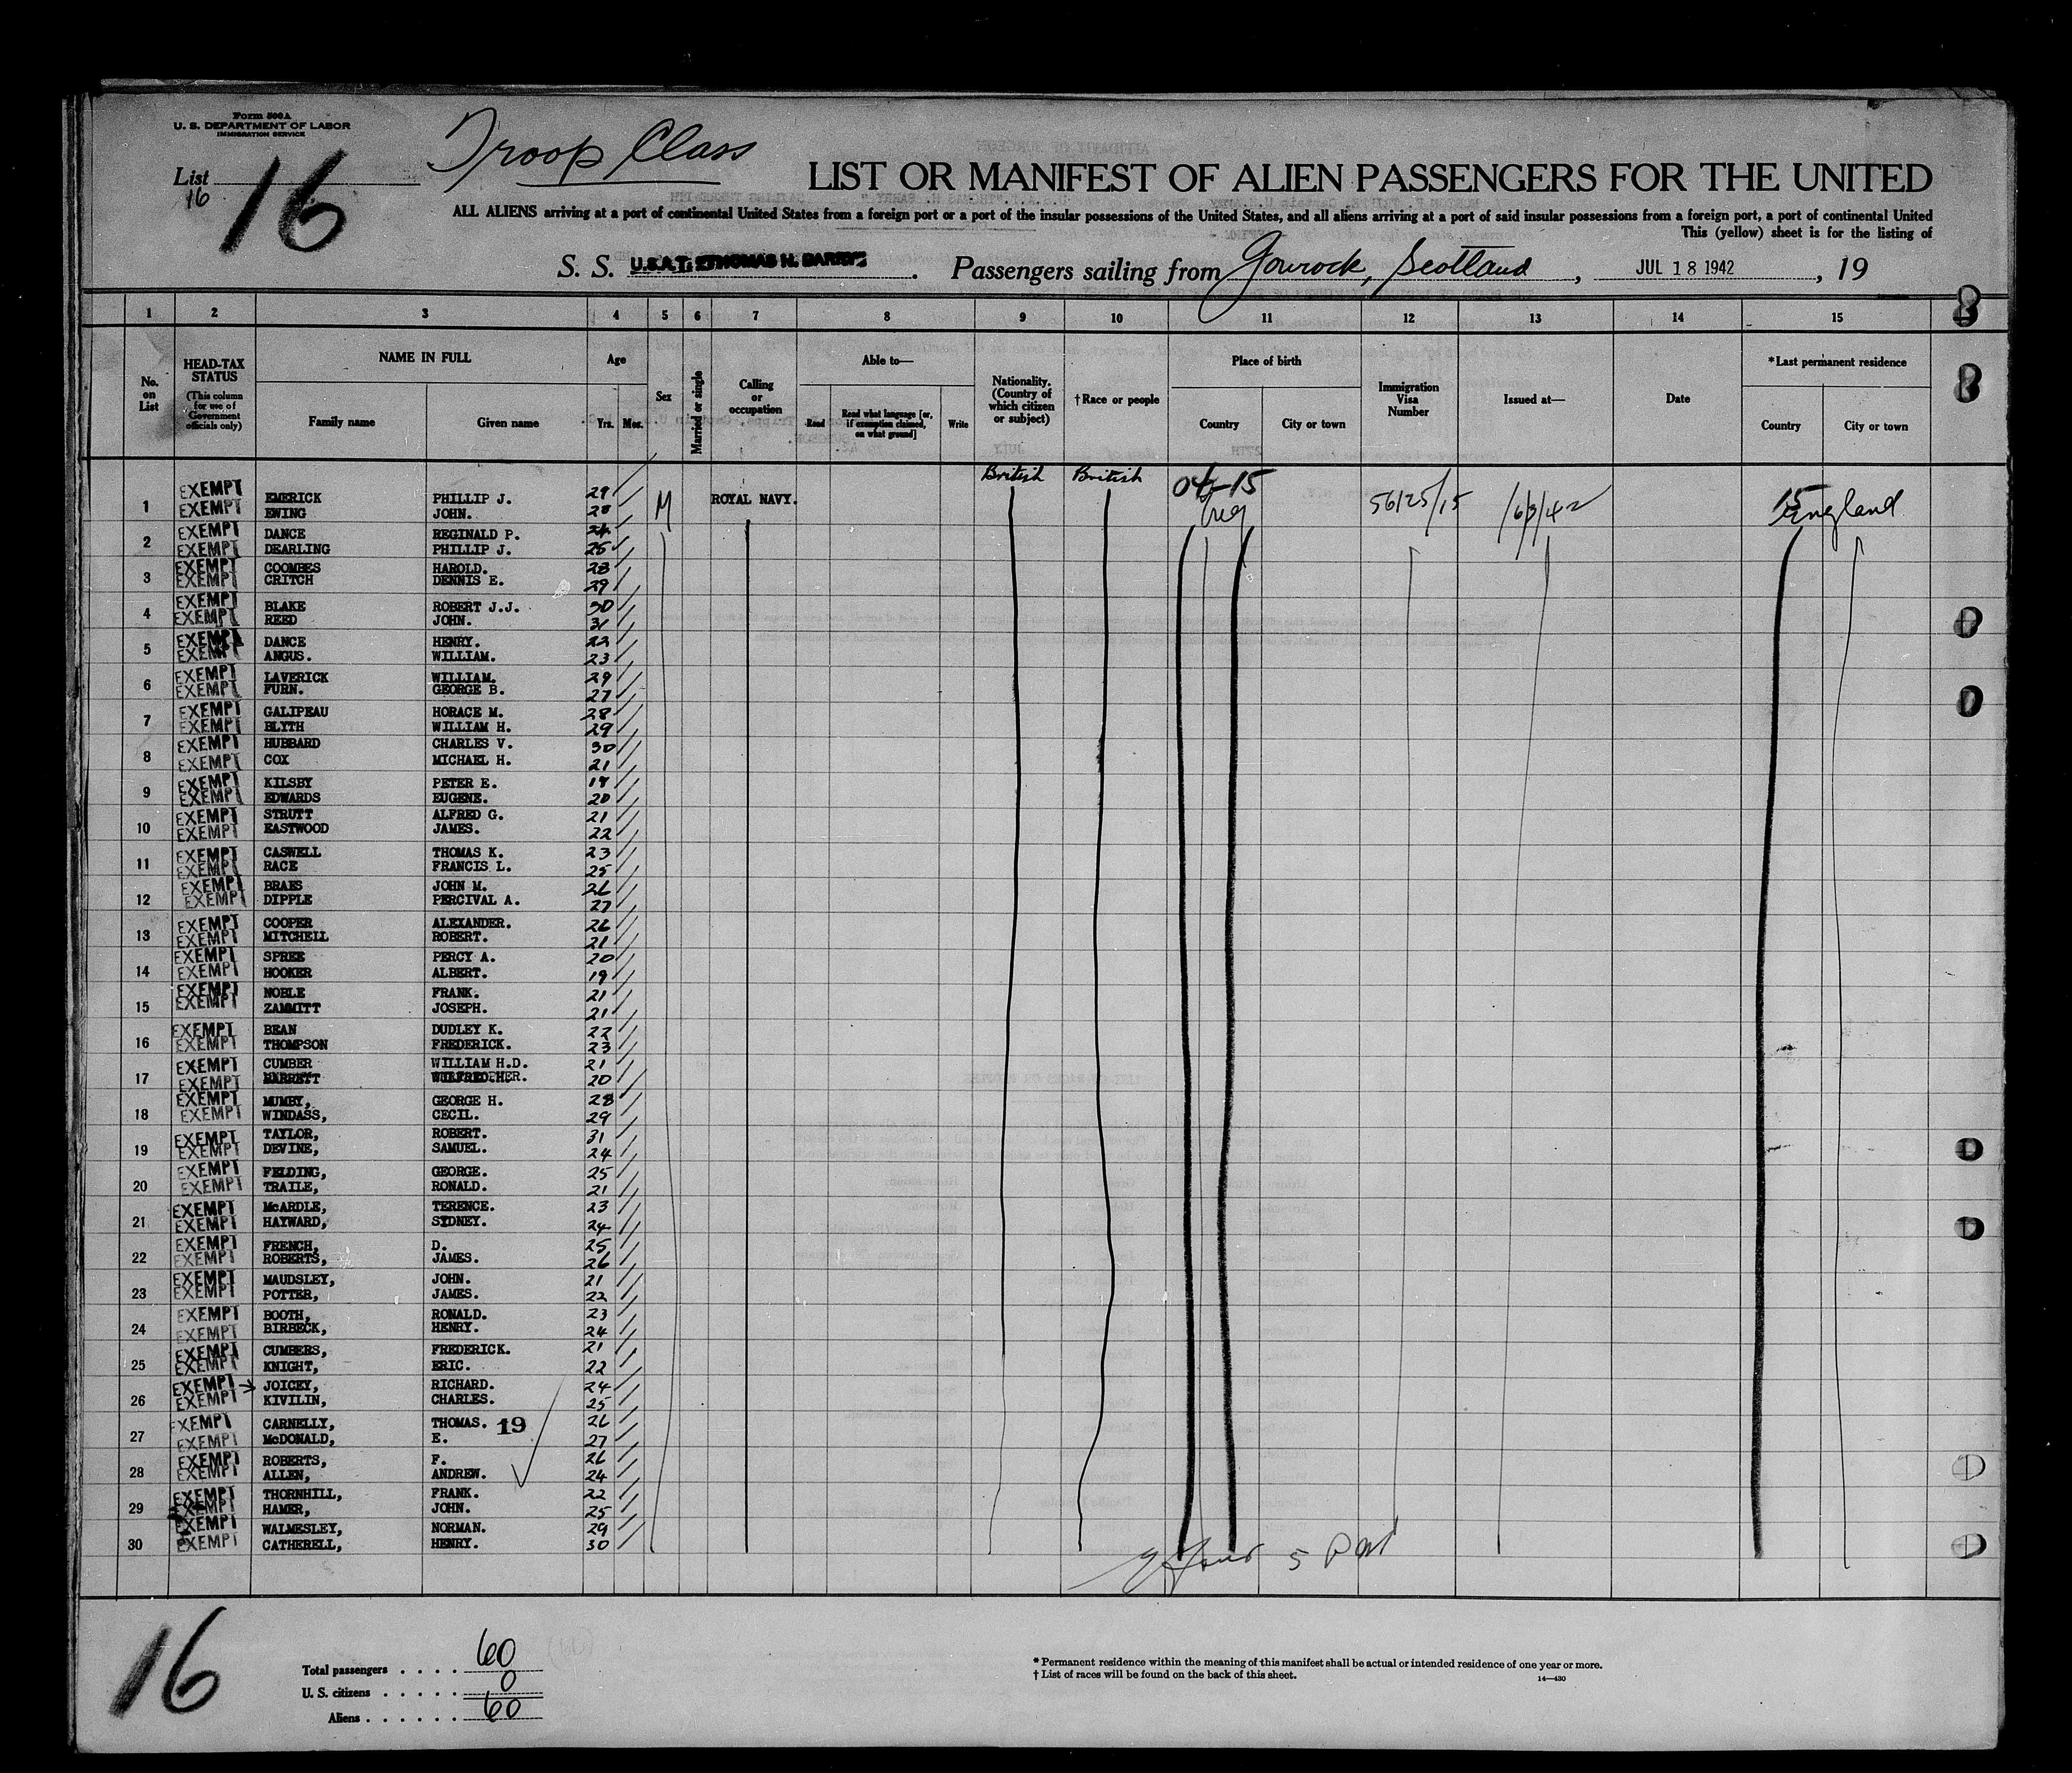 Form 500A
U. S. DEPARTMENT OF LABOR
IMMIGRATION SERVICE
List 16
16
Troop Class
LIST OR MANIFEST OF ALIEN PASSENGERS FOR THE UNITED
ALL ALIENS arriving at a port of continental United States from a foreign port or a port of the insular possessions of the United States, and all aliens arriving at a port of said insular possessions from a foreign port, a port of continental United
This (yellow) sheet is for the listing of
S. S. U.S.A.T. THOMAS H. BARRY. Passengers sailing from Gourock, Scotland, JUL 18 1942, 19
1 2 3 4 5 6 7 8 9 10 11 12 13 14 15
No. on List
HEAD-TAX STATUS
(This column for use of Government officials only)
NAME IN FULL
Family name Given name
Age
Yrs. Mos.
Sex
Married or single
Calling or occupation
Able to—
Read Read what language [or, if exemption claimed, on what ground] Write
Nationality. (Country of which citizen or subject)
†Race or people
Place of birth
Country City or town
Immigration Visa Number
Issued at—
Date
*Last permanent residence
Country City or town
British British 04-15
1 EXEMPT EMERICK PHILLIP J. 29 M ROYAL NAVY. 56125/15 15 England
EXEMPT EWING JOHN. 28
2 EXEMPT DANCE REGINALD P. 24
EXEMPT DEARLING PHILLIP J. 25
3 EXEMPT COOMBES HAROLD. 28
EXEMPT CRITCH DENNIS E. 29
4 EXEMPT BLAKE ROBERT J.J. 30
EXEMPT REED JOHN. 31
5 EXEMPT DANCE HENRY. 22
EXEMPT ANGUS. WILLIAM. 23
6 EXEMPT LAVERICK WILLIAM. 29
EXEMPT FURN. GEORGE B. 27
7 EXEMPT GALIPEAU HORACE M. 28
EXEMPT BLYTH WILLIAM H. 29
8 EXEMPT HUBBARD CHARLES V. 30
EXEMPT COX MICHAEL H. 21
9 EXEMPT KILSBY PETER E. 19
EXEMPT EDWARDS EUGENE. 20
10 EXEMPT STRUTT ALFRED G. 21
EXEMPT EASTWOOD JAMES. 22
11 EXEMPT CASWELL THOMAS K. 23
EXEMPT RACE FRANCIS L. 25
12 EXEMPT BRAES JOHN M. 26
EXEMPT DIPPLE PERCIVAL A. 27
13 EXEMPT COOPER ALEXANDER. 26
EXEMPT MITCHELL ROBERT. 21
14 EXEMPT SPREE PERCY A. 20
EXEMPT HOOKER ALBERT. 19
15 EXEMPT NOBLE FRANK. 21
EXEMPT ZAMMITT JOSEPH. 21
16 EXEMPT BEAN DUDLEY K. 22
EXEMPT THOMPSON FREDERICK. 23
17 EXEMPT CUMBER WILLIAM H.D. 21
EXEMPT BARRETT 20
18 EXEMPT MUMBY, GEORGE H. 28
EXEMPT WINDASS, CECIL. 29
19 EXEMPT TAYLOR, ROBERT. 31
EXEMPT DEVINE, SAMUEL. 24
20 EXEMPT FELDING, GEORGE. 25
EXEMPT TRAILE, RONALD. 21
21 EXEMPT McARDLE, TERENCE. 23
EXEMPT HAYWARD, SYDNEY. 24
22 EXEMPT FRENCH, D. 25
EXEMPT ROBERTS, JAMES. 26
23 EXEMPT MAUDSLEY, JOHN. 21
EXEMPT POTTER, JAMES. 22
24 EXEMPT BOOTH, RONALD. 23
EXEMPT BIRBECK, HENRY. 24
25 EXEMPT CUMBERS, FREDERICK. 21
EXEMPT KNIGHT, ERIC. 22
26 EXEMPT JOICEY, RICHARD. 24
EXEMPT KIVILIN, CHARLES. 25
27 EXEMPT CARNELLY, THOMAS. 19 26
EXEMPT McDONALD, E. 27
28 EXEMPT ROBERTS, F. 26
EXEMPT ALLEN, ANDREW. 24
29 EXEMPT THORNHILL, FRANK. 22
EXEMPT HAMER, JOHN. 25
30 EXEMPT WALMESLEY, NORMAN. 29
EXEMPT CATHERELL, HENRY. 30
16
Total passengers . . . . 60
U. S. citizens . . . . . 0
Aliens . . . . . . 60
* Permanent residence within the meaning of this manifest shall be actual or intended residence of one year or more.
† List of races will be found on the back of this sheet.
14—430